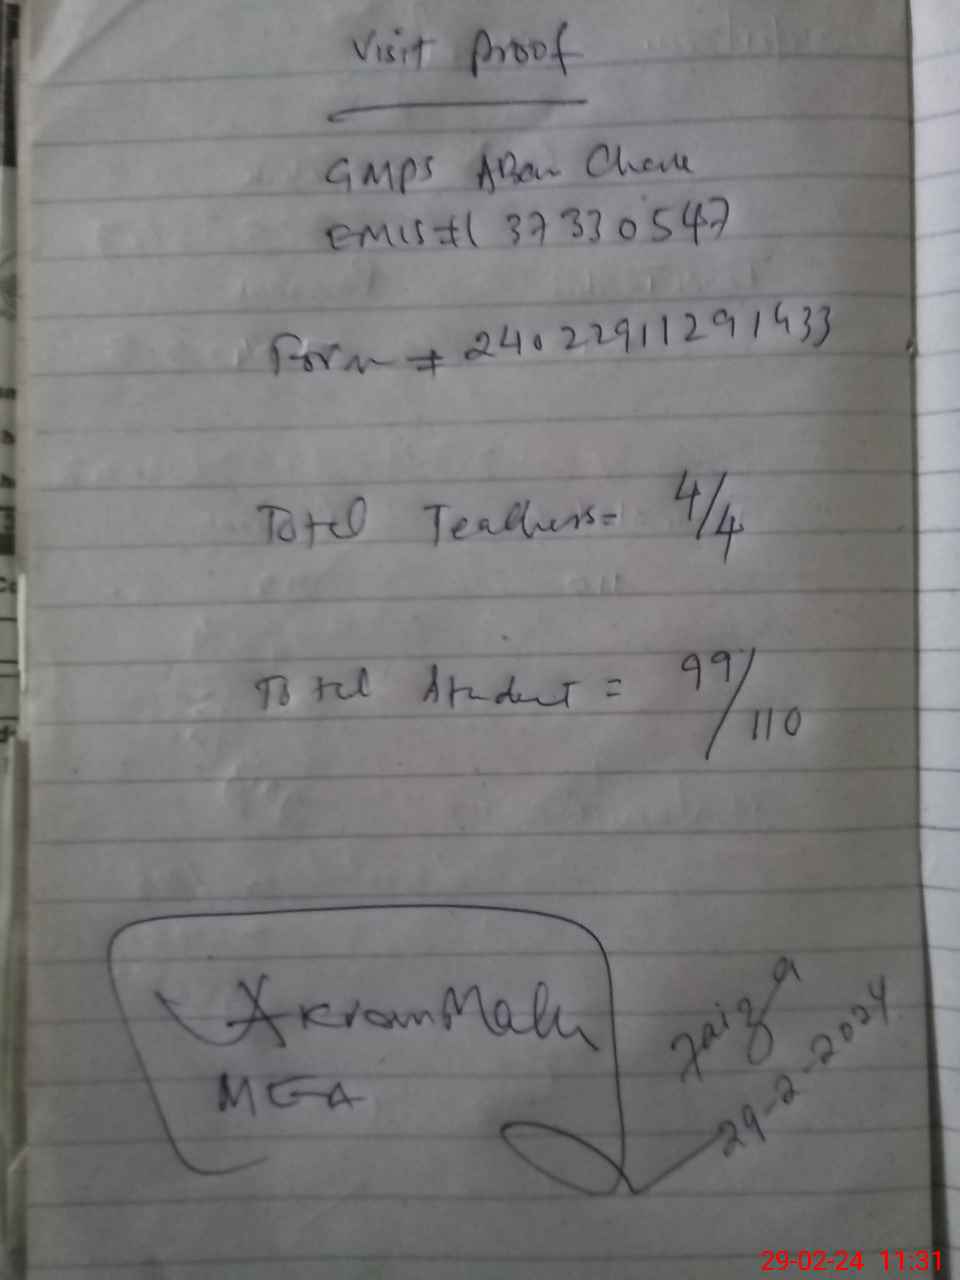 Visit Proof
GMPS ABan Chak
EMIS# 37330547
Form # 24022911291433
Total Teachers= 4/4
Total Student = 99/110
Akram
MEA
29-2-2024
29-02-24 11:31